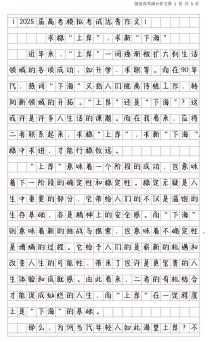 【2025届高考模拟考试优秀作文】
求稳“上岸”，求新“下海”
近年来，“上岸”一词逐渐被扩大到生活
领域的各项成功，如升学、求职等。而在90年
代，热词“下海”又助人们脱离传统工作，转
向新领域的开拓。“上岸”还是“下海”？这
或许是许多人生活的课题。而在我看来，应将
二者联系起来，求稳“上岸”，求新“下海”。
稳中求进，才能行稳致远。
“上岸”意味着一个阶段的成功，包意味
着下一阶段的确定性和稳定性。稳定无疑是人
生中的定位部分。它带给人们的不仅是温饱的
生存基础，亦是精神上的安全感。而“下海”
则意味着新的挑战与探索，包意味着不确定性，
是谱熵的过程。它给予人们的是崭新的机遇和
改变人生的可能性，带来了也许是更宝贵的人
生体验和成就感。由此看来，二者的有机结合
才能促成灿烂的人生，而“上岸”在一定程度
上是“下海”的基础。
那么，为何当代年轻人如此渴望上岸？不